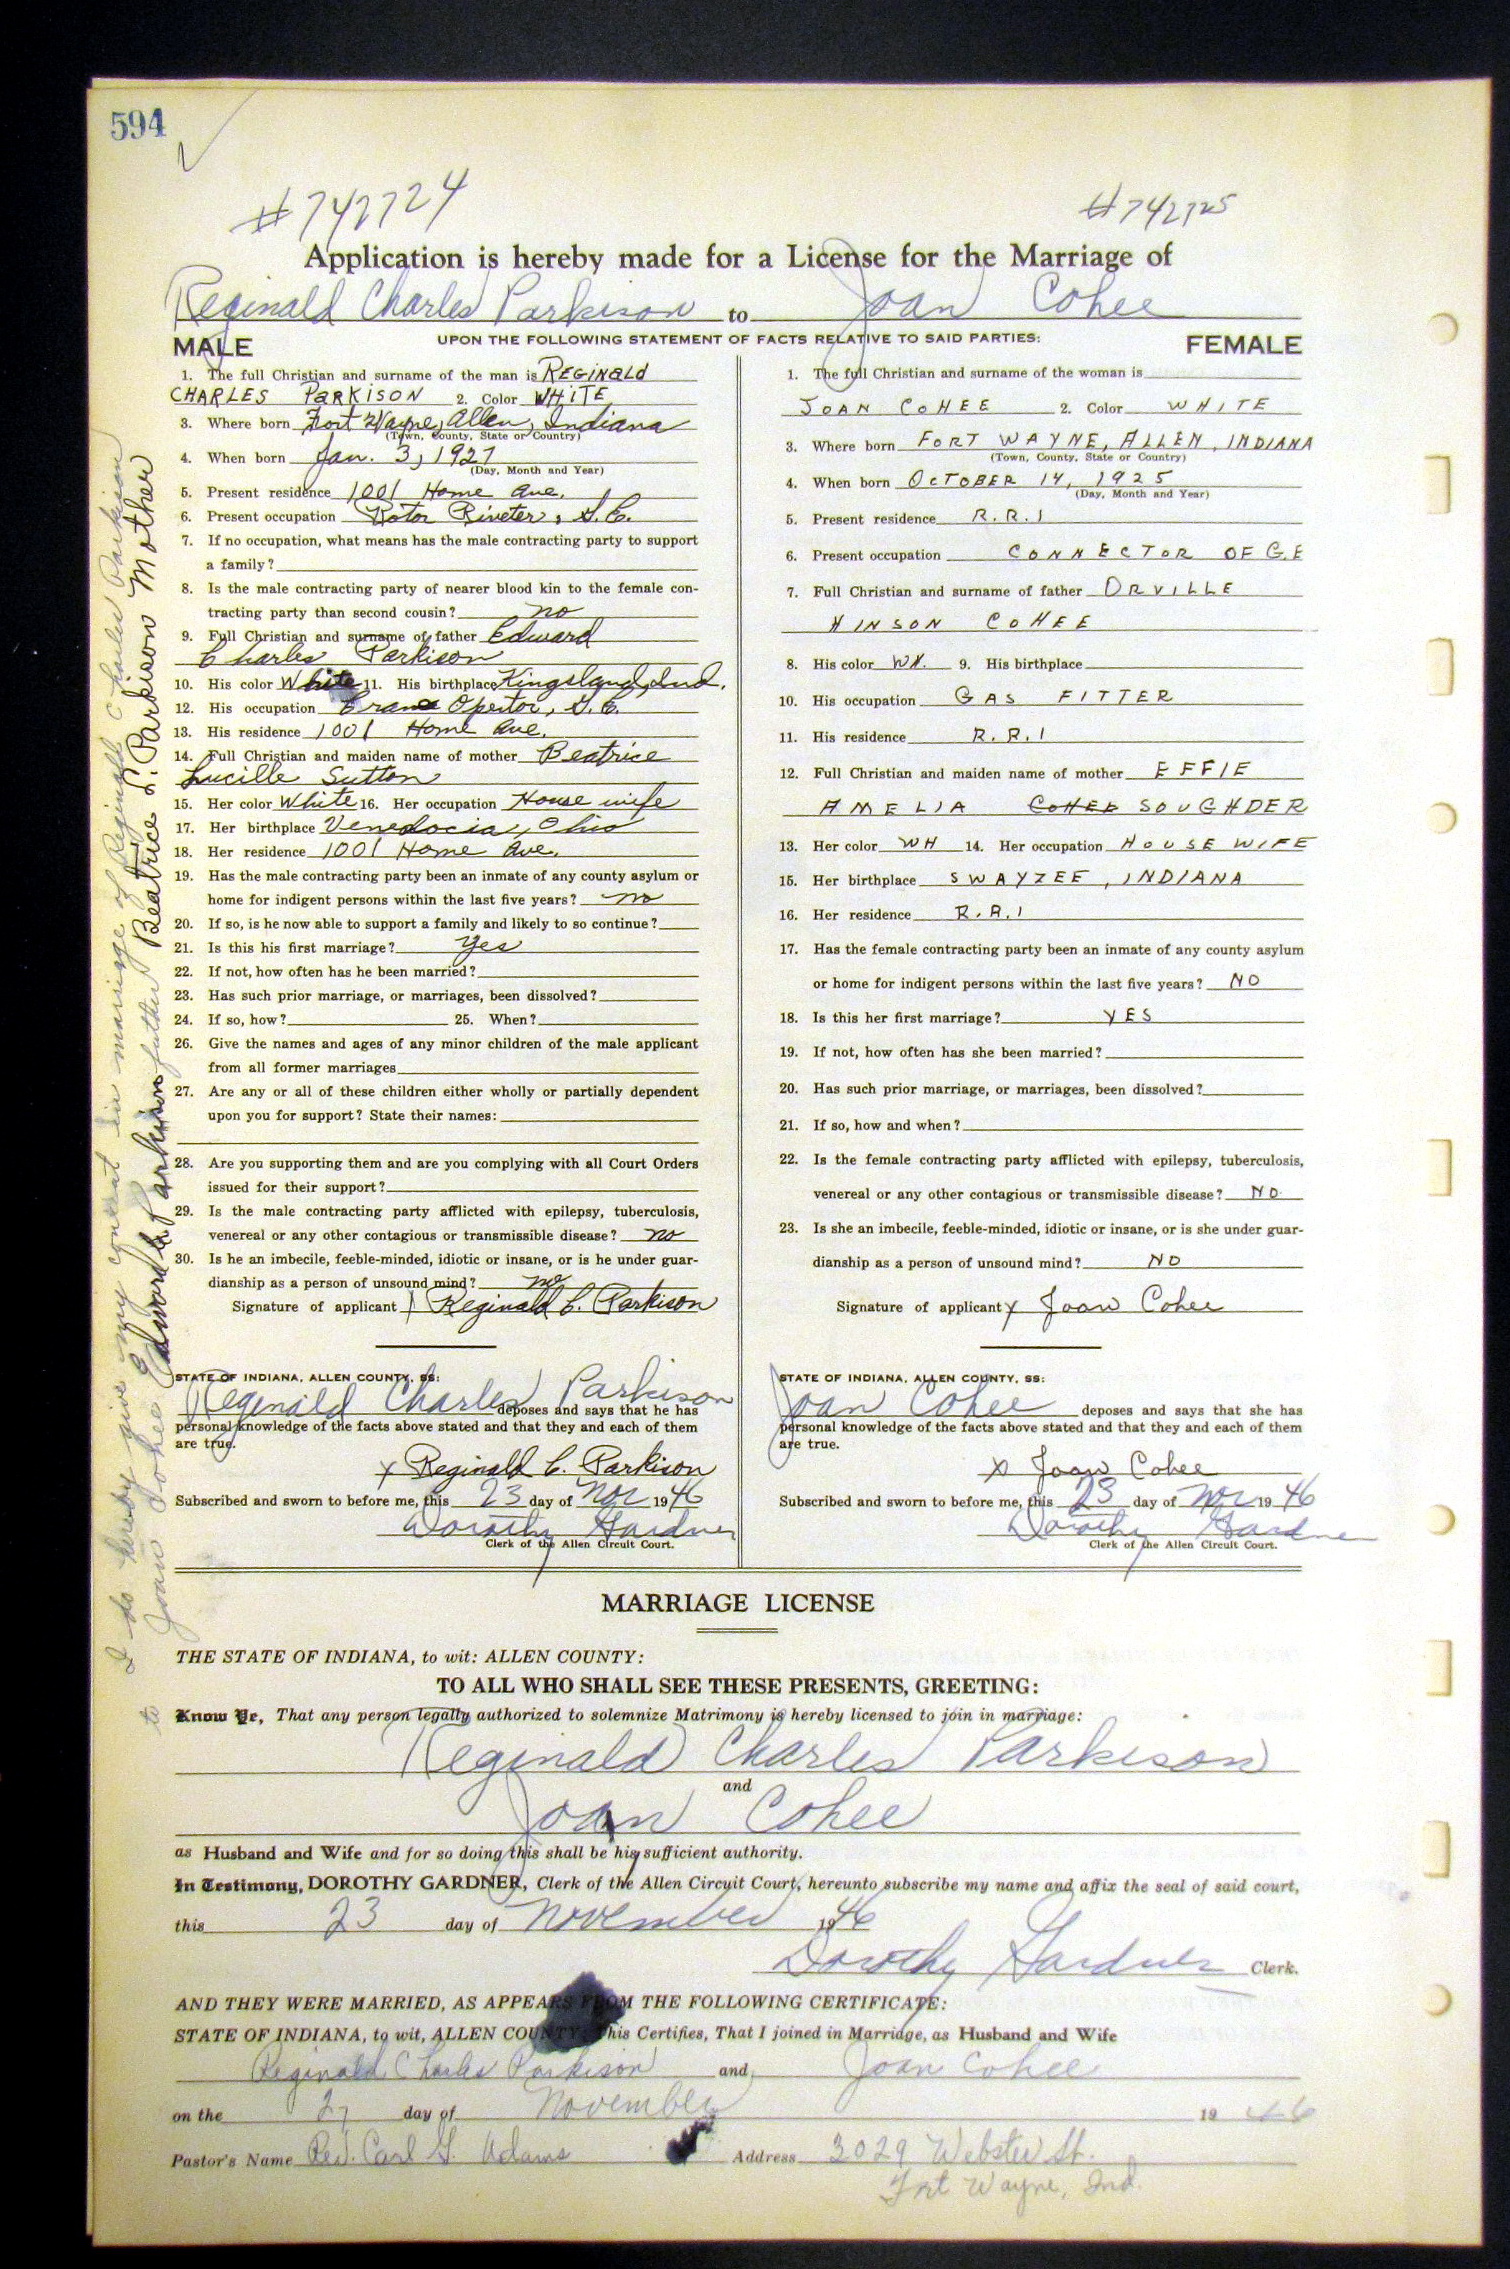 594
#742724
#742725
Application is hereby made for a License for the Marriage of
Reginald Charles Parkison to Joan Cohee
UPON THE FOLLOWING STATEMENT OF FACTS RELATIVE TO SAID PARTIES:
MALE
1. The full Christian and surname of the man is REGINALD
CHARLES PARKISON 2. Color WHITE
3. Where born Fort Wayne, Allen, Indiana
(Town, County, State or Country)
4. When born Jan. 3, 1927
(Day, Month and Year)
5. Present residence 1001 Home Ave.
6. Present occupation Rotor Riveter, G.E.
7. If no occupation, what means has the male contracting party to support
a family?
8. Is the male contracting party of nearer blood kin to the female con-
tracting party than second cousin? no
9. Full Christian and surname of father Edward
Charles Parkison
10. His color White 11. His birthplace Kingsland, Ind.
12. His occupation Crane Opertor, G.E.
13. His residence 1001 Home Ave.
14. Full Christian and maiden name of mother Beatrice
Lucille Sutton
15. Her color White 16. Her occupation House wife
17. Her birthplace Venedocia, Ohio
18. Her residence 1001 Home Ave.
19. Has the male contracting party been an inmate of any county asylum or
home for indigent persons within the last five years? no
20. If so, is he now able to support a family and likely to so continue?
21. Is this his first marriage? Yes
22. If not, how often has he been married?
23. Has such prior marriage, or marriages, been dissolved?
24. If so, how? 25. When?
26. Give the names and ages of any minor children of the male applicant
from all former marriages
27. Are any or all of these children either wholly or partially dependent
upon you for support? State their names:
28. Are you supporting them and are you complying with all Court Orders
issued for their support?
29. Is the male contracting party afflicted with epilepsy, tuberculosis,
venereal or any other contagious or transmissible disease? no
30. Is he an imbecile, feeble-minded, idiotic or insane, or is he under guar-
dianship as a person of unsound mind? no
Signature of applicant x Reginald C. Parkison
STATE OF INDIANA, ALLEN COUNTY, SS:
Reginald Charles Parkison deposes and says that he has
personal knowledge of the facts above stated and that they and each of them
are true.
x Reginald C. Parkison
Subscribed and sworn to before me, this 23 day of Nov 1946
Dorothy Gardner
Clerk of the Allen Circuit Court.
FEMALE
1. The full Christian and surname of the woman is
JOAN COHEE 2. Color WHITE
3. Where born FORT WAYNE, ALLEN, INDIANA
(Town, County, State or Country)
4. When born OCTOBER 14, 1925
(Day, Month and Year)
5. Present residence R.R.1
6. Present occupation CONNECTOR OF G.E
7. Full Christian and surname of father ORVILLE
HINSON COHEE
8. His color WH. 9. His birthplace
10. His occupation GAS FITTER
11. His residence R.R.1
12. Full Christian and maiden name of mother EFFIE
AMELIA COHEE SOUGHDER
13. Her color WH 14. Her occupation HOUSE WIFE
15. Her birthplace SWAYZEE, INDIANA
16. Her residence R.R.1
17. Has the female contracting party been an inmate of any county asylum
or home for indigent persons within the last five years? NO
18. Is this her first marriage? YES
19. If not, how often has she been married?
20. Has such prior marriage, or marriages, been dissolved?
21. If so, how and when?
22. Is the female contracting party afflicted with epilepsy, tuberculosis,
venereal or any other contagious or transmissible disease? NO
23. Is she an imbecile, feeble-minded, idiotic or insane, or is she under guar-
dianship as a person of unsound mind? NO
Signature of applicant x Joan Cohee
STATE OF INDIANA, ALLEN COUNTY, SS:
Joan Cohee deposes and says that she has
personal knowledge of the facts above stated and that they and each of them
are true.
x Joan Cohee
Subscribed and sworn to before me, this 23 day of Nov 1946
Dorothy Gardner
Clerk of the Allen Circuit Court.
I do hereby give my consent in marriage of Reginald Charles Parkison
to Joan Cohee Edward C. Parkison father Beatrice L. Parkison Mother
MARRIAGE LICENSE
THE STATE OF INDIANA, to wit: ALLEN COUNTY:
TO ALL WHO SHALL SEE THESE PRESENTS, GREETING:
Know Ye, That any person legally authorized to solemnize Matrimony is hereby licensed to join in marriage:
Reginald Charles Parkison
and
Joan Cohee
as Husband and Wife and for so doing this shall be his sufficient authority.
In Testimony, DOROTHY GARDNER, Clerk of the Allen Circuit Court, hereunto subscribe my name and affix the seal of said court,
this 23 day of November 1946
Dorothy Gardner Clerk.
AND THEY WERE MARRIED, AS APPEARS FROM THE FOLLOWING CERTIFICATE:
STATE OF INDIANA, to wit, ALLEN COUNTY: This Certifies, That I joined in Marriage, as Husband and Wife
Reginald Charles Parkison and Joan Cohee
on the 27 day of November 1946
Pastor's Name Rev. Carl G. Adams Address 3029 Webster St.
Fort Wayne, Ind.